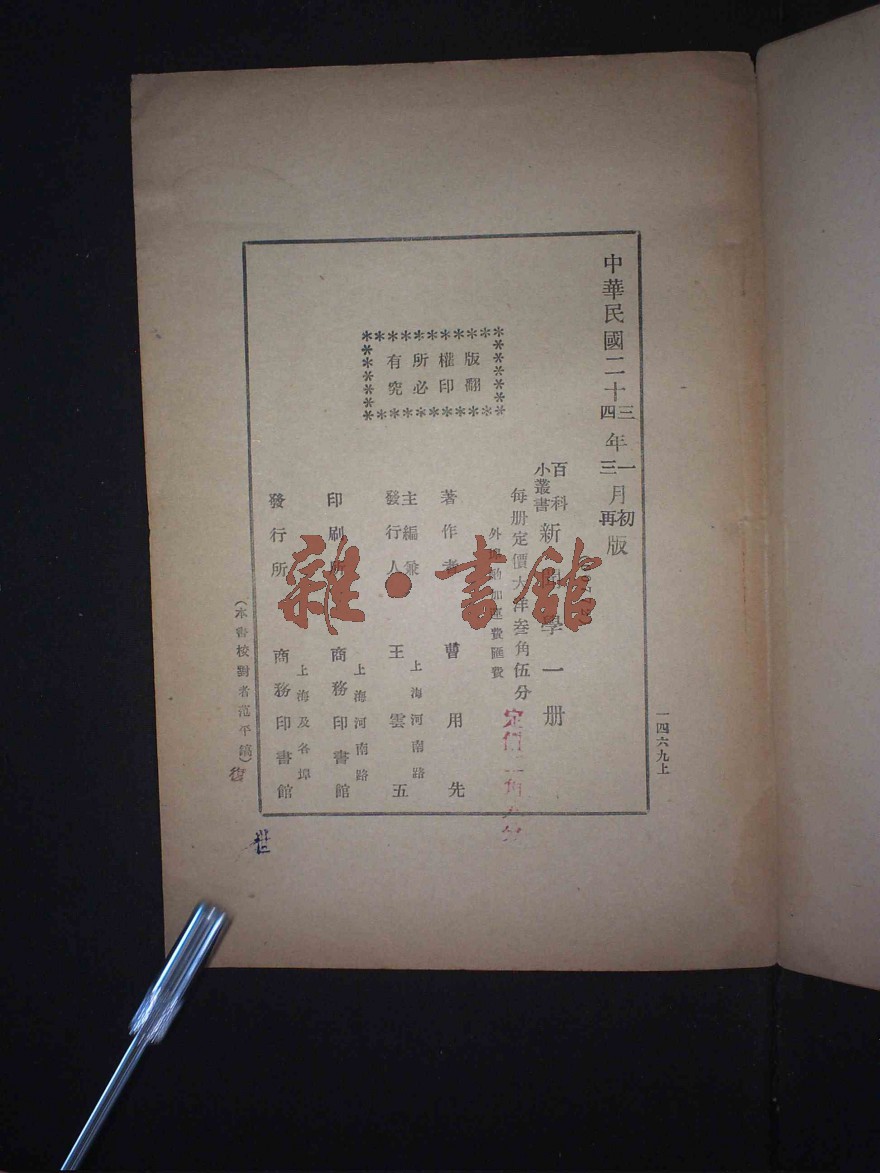 中華民國二十三年一月初版
四三再
百科
小叢書
新聞學一册
每册定價大洋叁角伍分
外埠酌加運費匯費
著作者 曹用先
主編兼
發行人 王雲五
上海河南路
印刷所 商務印書館
上海河南路
發行所 商務印書館
上海及各埠
版權所有
翻印必究
一四六九上
(本書校對者范平鎬)
定價
雜•書館